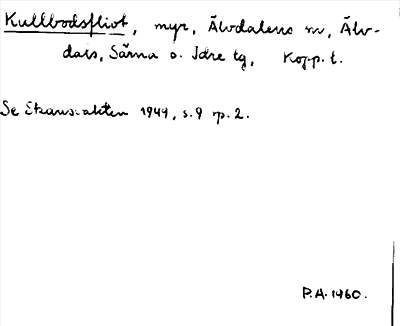 Kullbodsfliot, myr, Älvdalens sn, Älv-
dals, Särna o. Idre tg, Kopp. l.
Se Ekans-akten 1944, s. 9 p. 2.
P.A. 1460.